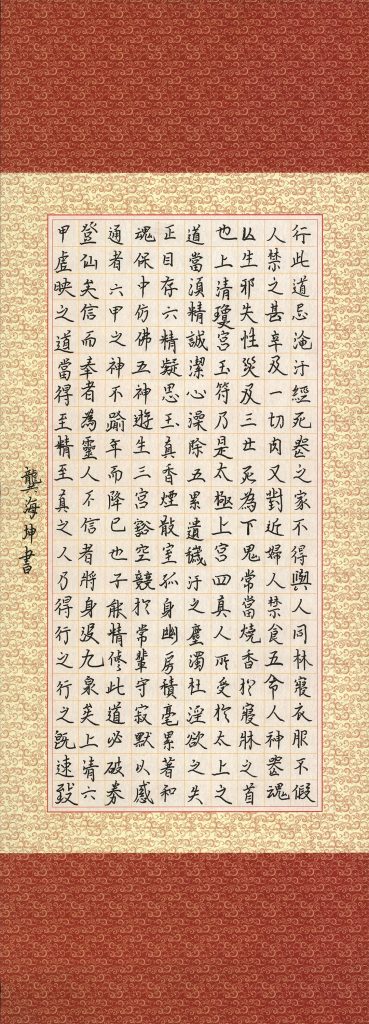 行此道忌淹汙經死喪之家不得與人同床寢衣服不假
人禁之甚辛及一切肉又對近婦人禁食五令人神喪魂
亡生邪失性災及三世死為下鬼常當燒香於寢床之首
也上清瓊宮玉符乃是太極上宮四真人所受於太上之
道當須精誠潔心澡除五累遺穢汙之塵濁杜淫欲之失
正目存六精凝思玉真香煙散室孤身幽房積毫累著和
魂保中仿佛五神遊生三宮豁空競於常輩守寂默以感
通者六甲之神不踰年而降已也子能精修此道必破券
登仙矣信而奉者為靈人不信者將身沒九泉矣上清六
甲虛映之道當得至精至真之人乃得行之行之既速致
龔海坤書